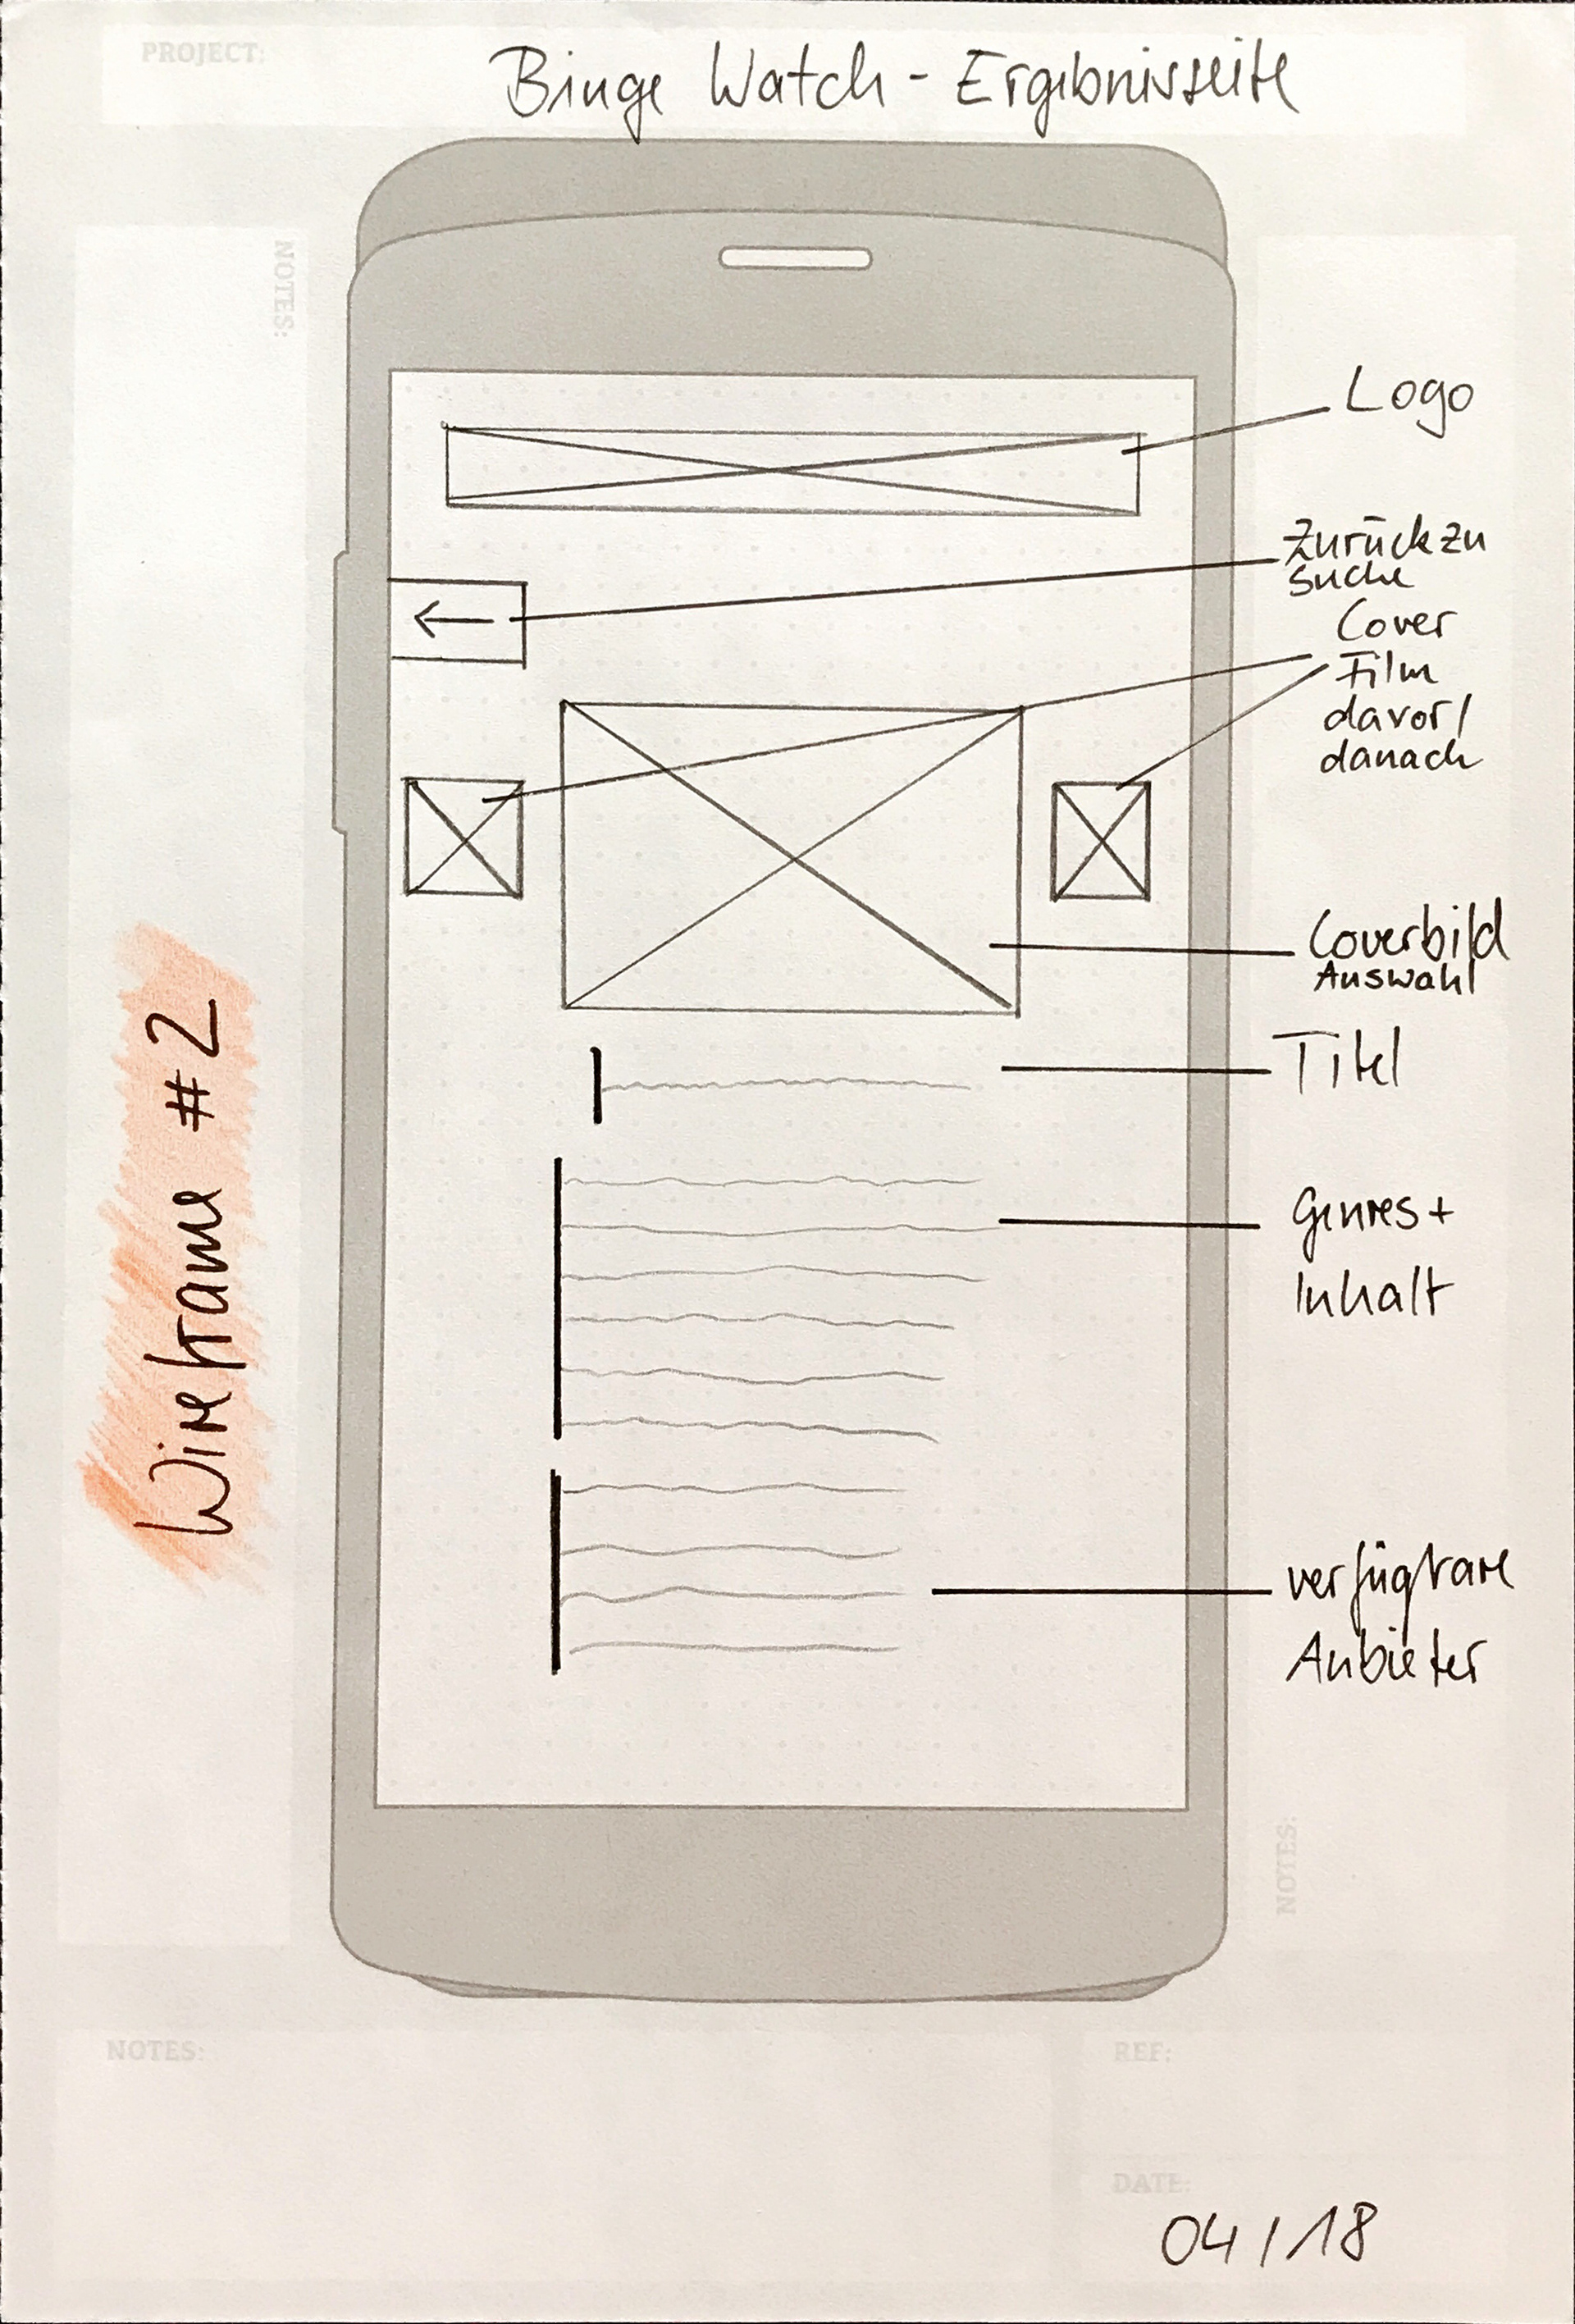 PROJECT:
Binge Watch - Ergebnisseite
NOTES:
Logo
Zurück zu
Suche
Cover
Film
davor/
danach
Coverbild
Auswahl
Titel
Wireframe #2
Genres +
Inhalt
verfügbare
Anbieter
NOTES:
NOTES:
REF:
DATE:
04/18